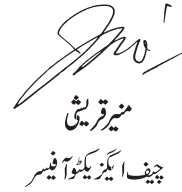 منیر قریشی
چیف ایگزیکٹو آفیسر